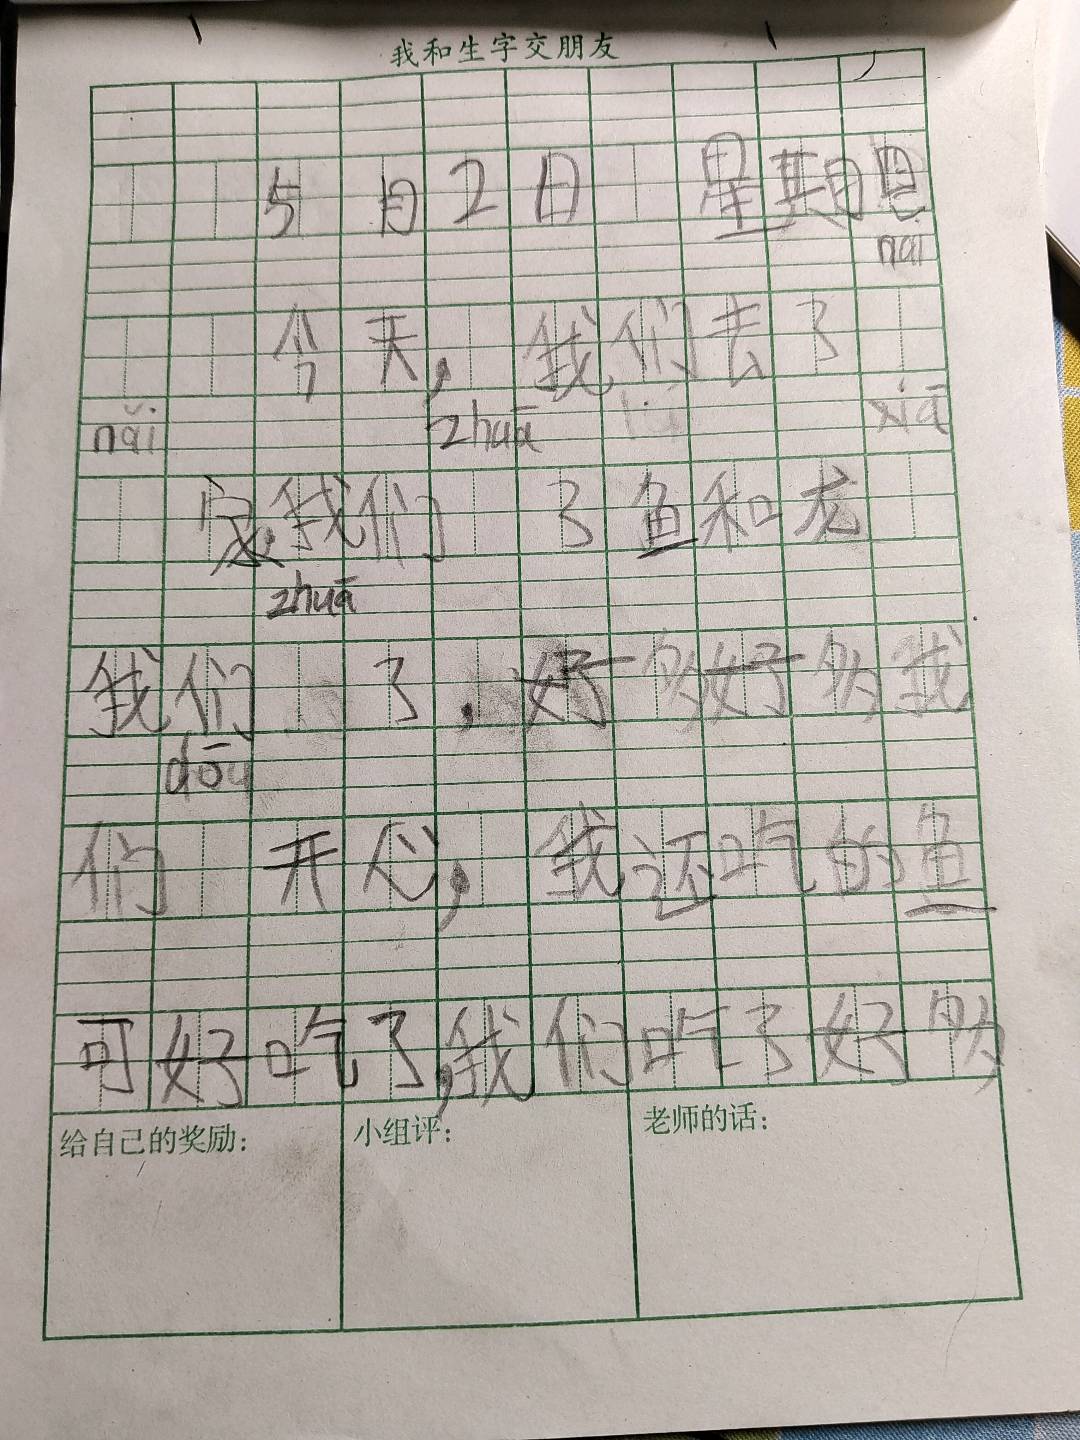 我和生字交朋友
5月2日 星期四
nǎi
今天，我们去了
nǎi zhuā xiā
家，我们 了鱼和龙
zhuā
我们 了，好多好多我
dōu
们 开心，我还吃的鱼
可好吃了，我们吃了好多
给自己的奖励： 小组评： 老师的话：